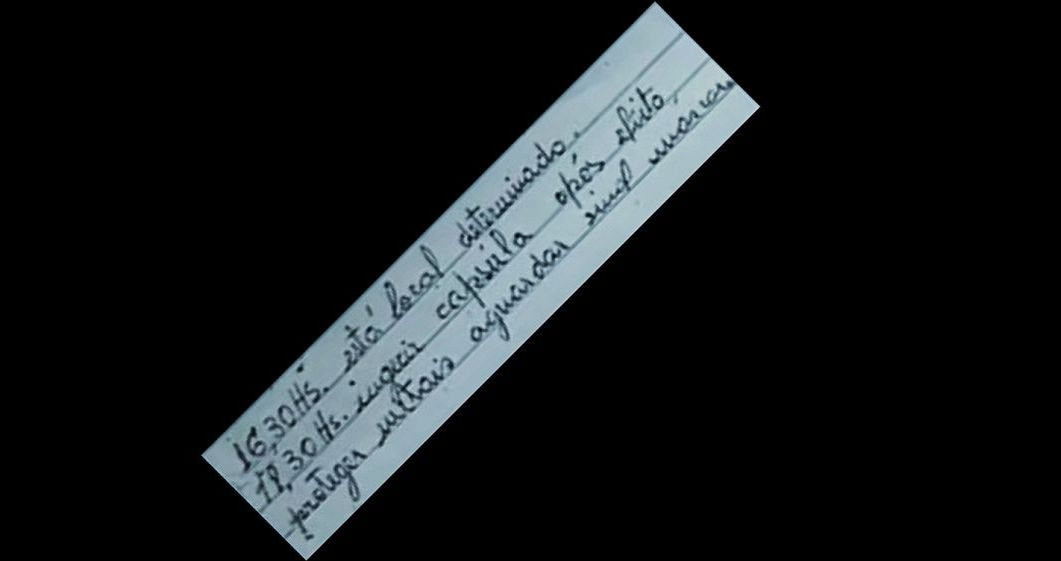 16,30 Hs. está local determinado.
18,30 Hs. ingerir capsula após efeito,
proteger metais aguardar sinal mascara